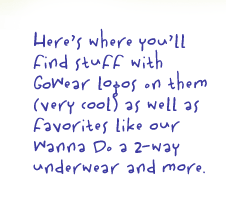 Here's where you'll
find stuff with
GoWear logos on them
(very cool) as well as
favorites like our
Wanna Do a 2-way
underwear and more.